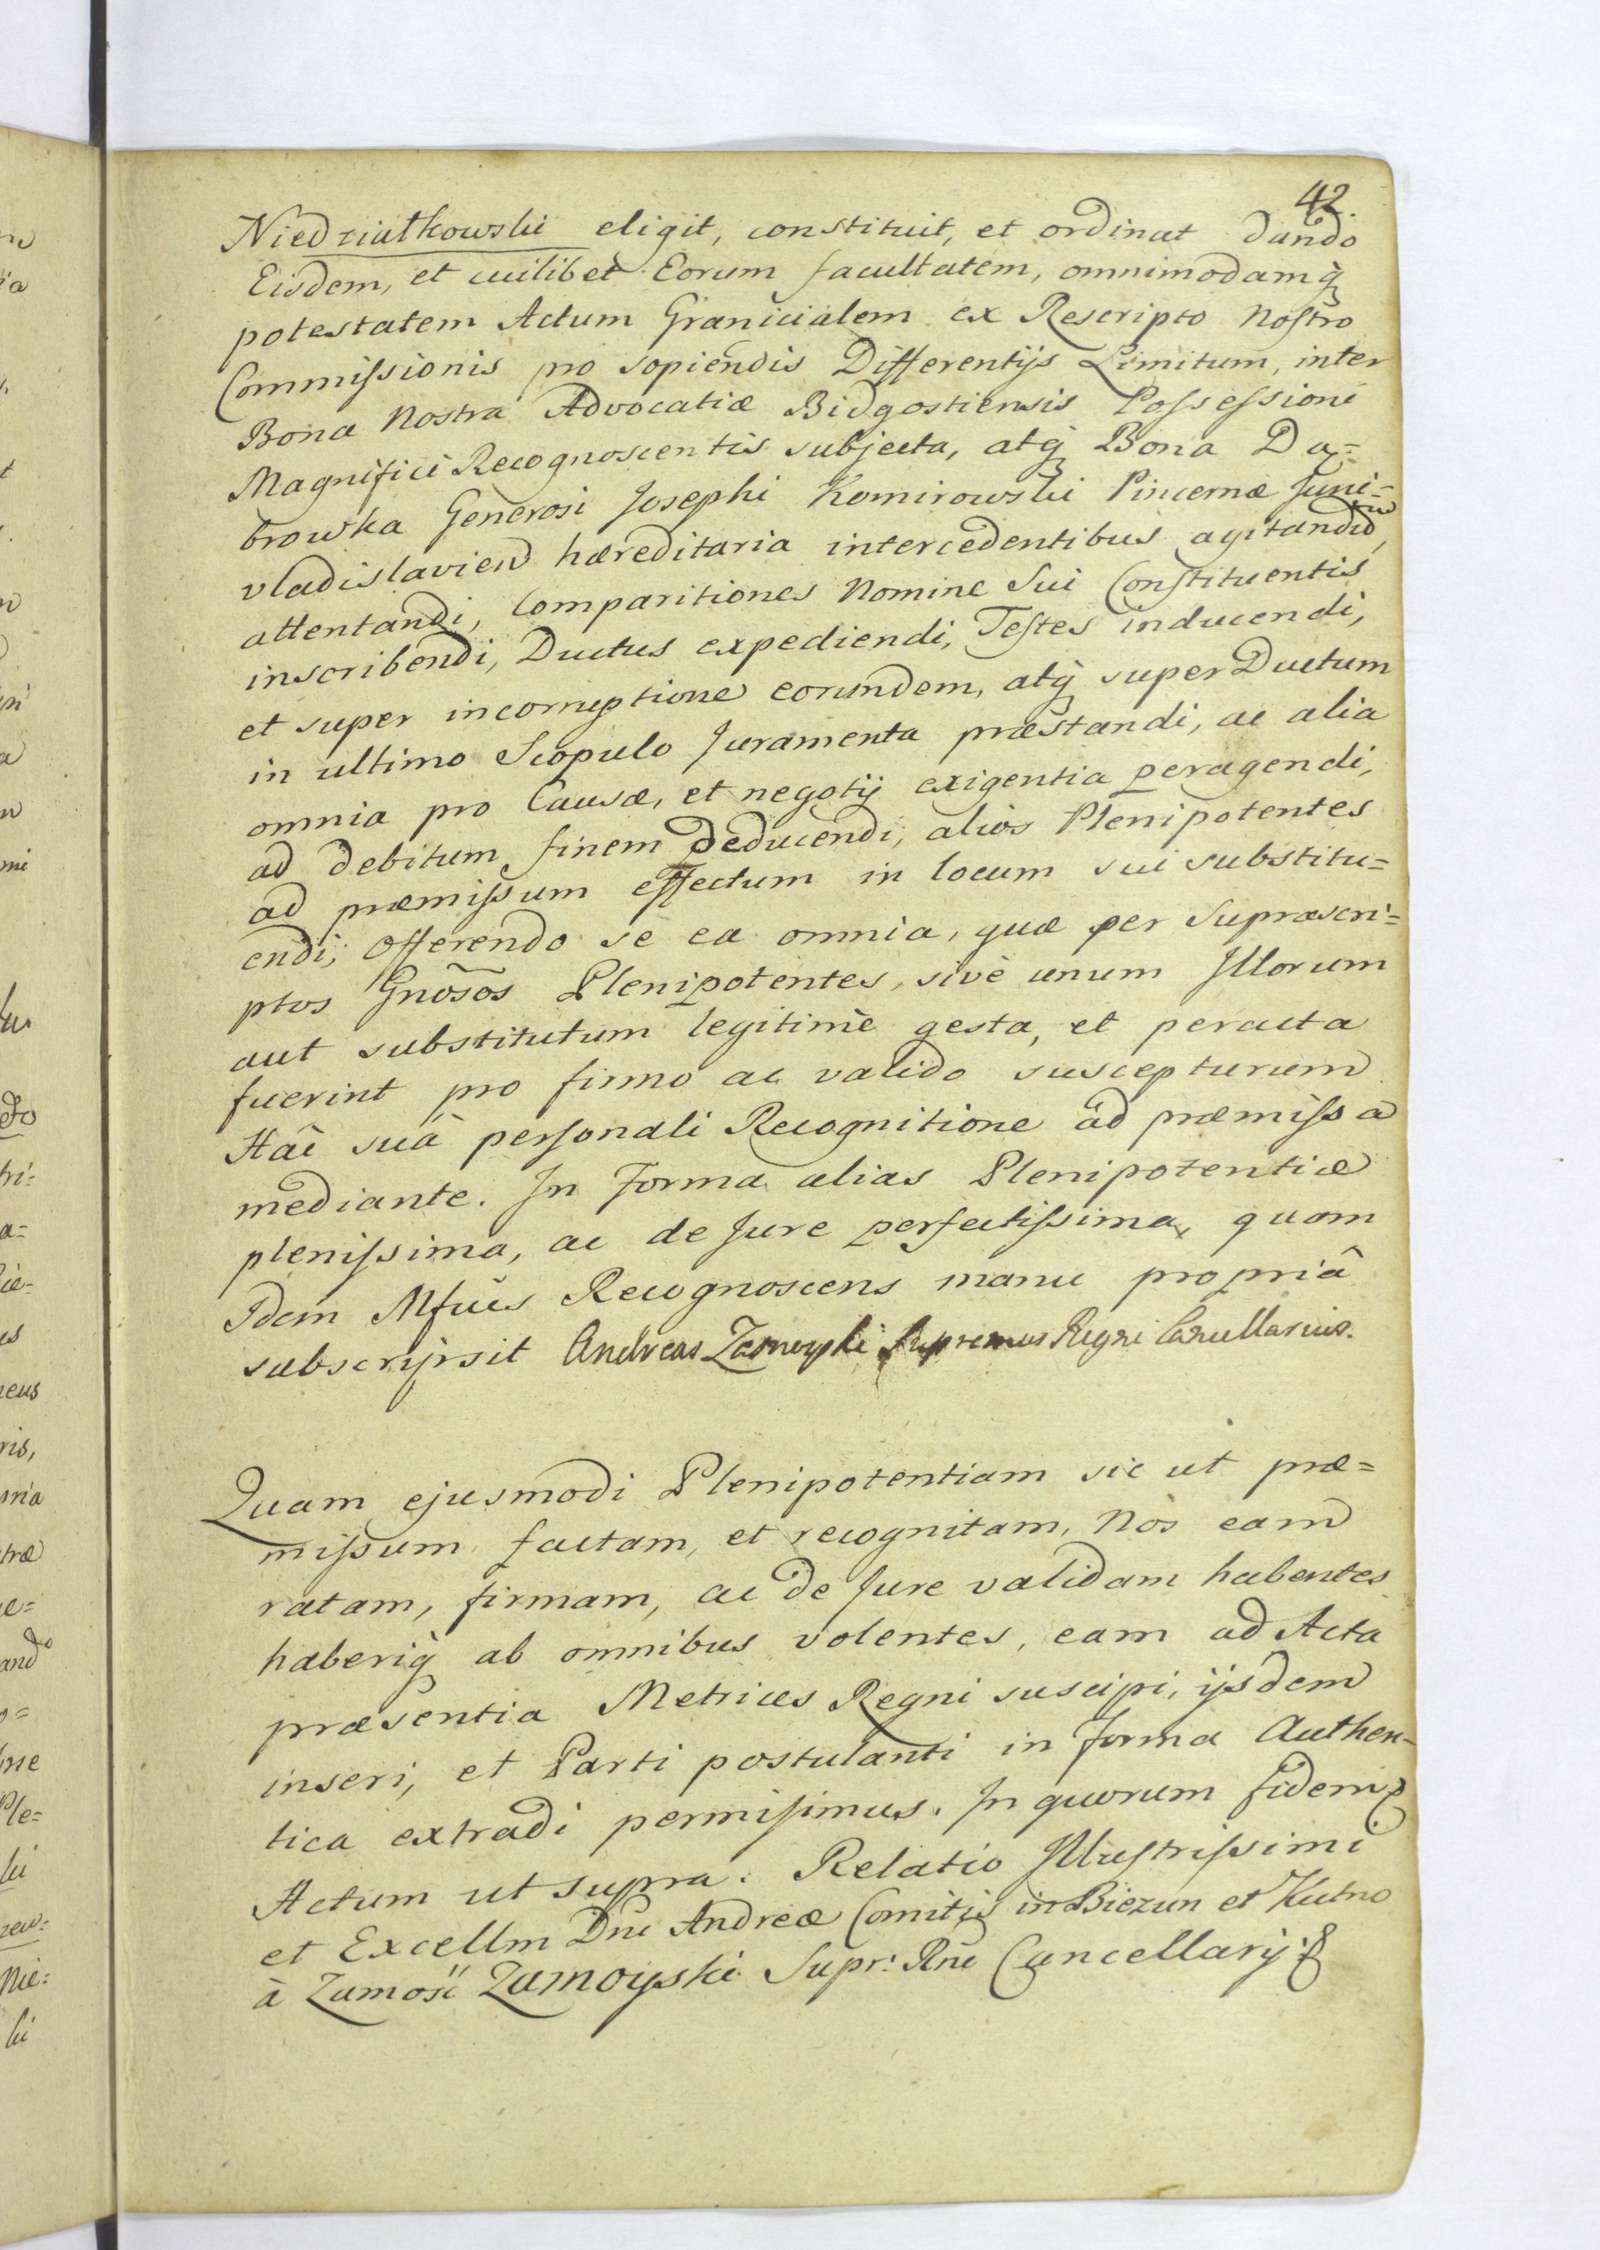 42.
Niedziałkowski eligit, constituit, et ordinat dando
Eisdem, et cuilibet Eorum facultatem, omnimodamq̀
potestatem Actum Granicialem ex Rescripto Nostro
Commissionis pro sopiendis Differentijs Limitum, inter
Bona Nostra Advocatiæ Bidgostiensis Possessioni
Magnifici Recognoscentis subjecta, atq̀ Bona Da=
browka Generosi Josephi Komirowski Pincernæ Juni=
vladislavien hæreditaria intercedentibus agitandi,
attentandi, Comparitiones Nomine Sui Constituentis
inscribendi, Ductus expediendi, Testes inducendi,
et super incorruptione eorundem, atq̀ super Ductum
in ultimo Scopulo Juramenta præstandi, ac alia
omnia pro Causæ, et negotij exigentia peragendi,
ad debitum finem deducendi, alios Plenipotentes
ad præmissum effectum in locum sui substitu=
endi; Offerendo se ea omnia, quæ per Supræscri=
ptos Gnosos Plenipotentes, sivè unum Illorum
aut substitutum legitimè gesta, et peracta
fuerint pro firmo ac valido suscepturum
Hâc suâ personali Recognitione ad præmissa
mediante. In Forma alias Plenipotentiæ
plenissima, ac de Jure perfectissima, quam
Idem Mfcus Recognoscens manu propriâ
subscripsit Andreas Zamoyski Supremus Regni Cancellarius.
Quam ejusmodi Plenipotentiam sic ut præ=
missum factam, et recognitam, Nos eam
ratam, firmam, ac de Jure validam habentes
haberiq̀ ab omnibus volentes, eam ad Acta
præsentia Metrices Regni suscipi, ijsdem
inseri, et Parti postulanti in forma Authen=
tica extradi permisimus. In quorum fidem
Actum ut supra. Relatio Illustrissimi
et Excellm Dni Andreæ Comitis in Biezun et Kutno
à Zamość Zamoyski Supr: Rni Cancellarij.